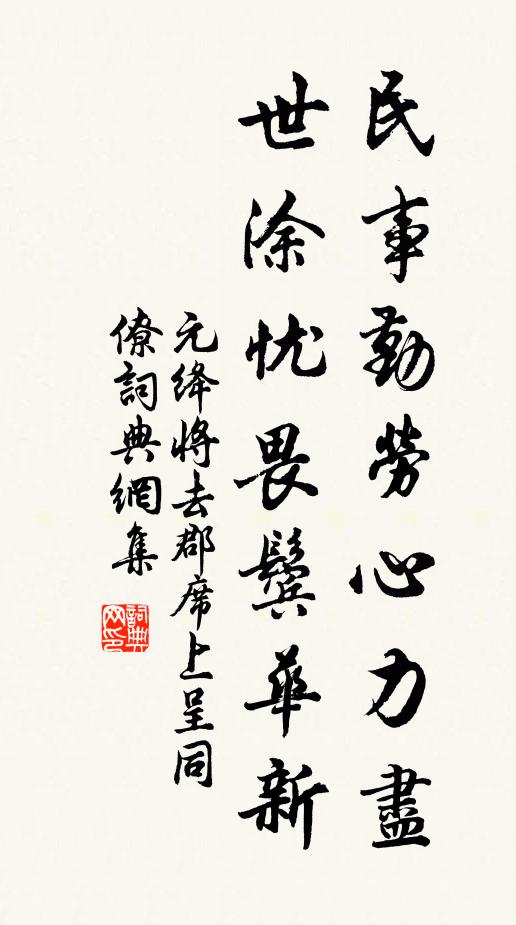 民事勤勞心力盡
世涂忧畏鬓華新
元絳將去郡席上呈同
僚詞典網集
詞典网印